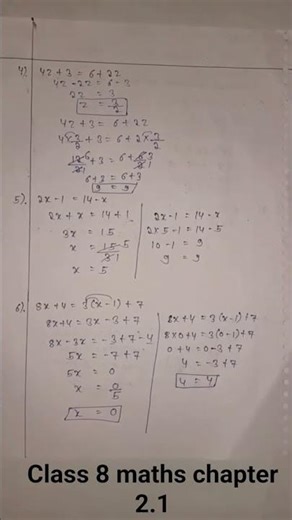 4). 4z + 3 = 6 + 2z
4z - 2z = 6 - 3
2z = 3
z = 3/2
4z + 3 = 6 + 2z
4 × 3/2 + 3 = 6 + 2 × 3/2
12/2 + 3 = 6 + 6/2
6 + 3 = 6 + 3
9 = 9
5). 2x - 1 = 14 - x
2x + x = 14 + 1
3x = 15
x = 15/3 5
x = 5
2x - 1 = 14 - x
2 × 5 - 1 = 14 - 5
10 - 1 = 9
9 = 9
6). 8x + 4 = 3(x - 1) + 7
8x + 4 = 3x - 3 + 7
8x - 3x = -3 + 7 - 4
5x = -7 + 7
5x = 0
x = 0/5
x = 0
8x + 4 = 3(x - 1) + 7
8 × 0 + 4 = 3(0 - 1) + 7
0 + 4 = 0 - 3 + 7
4 = -3 + 7
4 = 4
Class 8 maths chapter
2.1